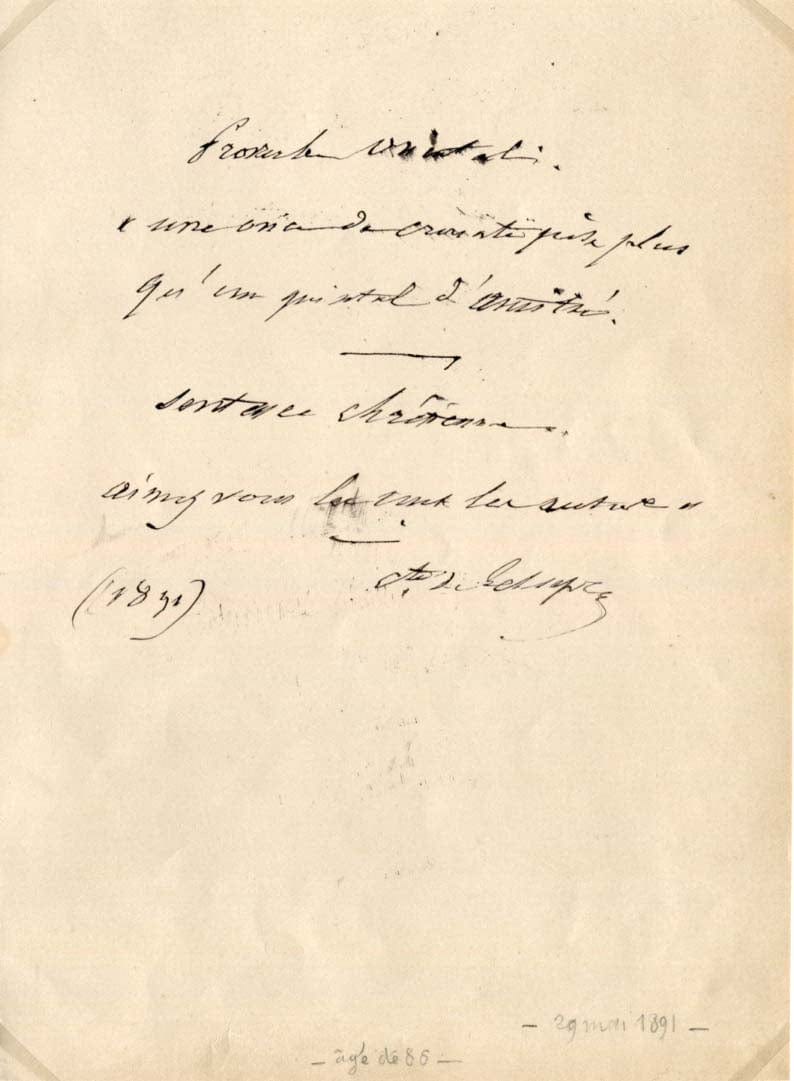 Proverbe oriental.
« une once de crainte pèse plus
qu'un quintal d'amitié.
sentence chrétienne.
aimez vous les uns les autres »
(1891)
Cte de Lesseps
— 29 mai 1891 —
— âgé de 86 —